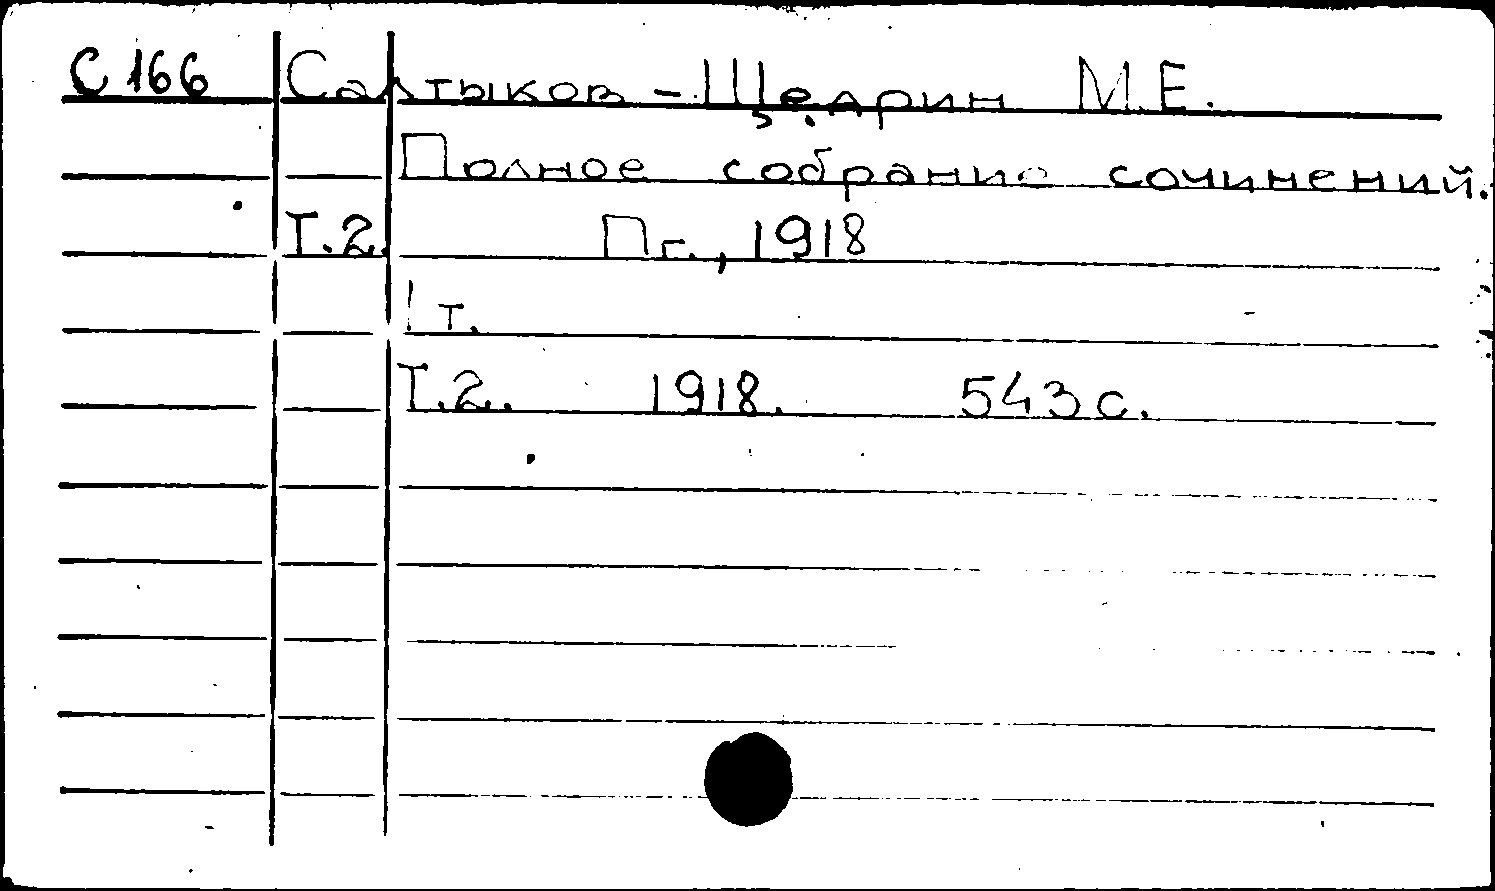 С 166 Салтыков-Щедрин М.Е.
Полное собрание сочинений.
Т.2. Пг., 1918
1 т.
Т.2. 1918. 543 с.